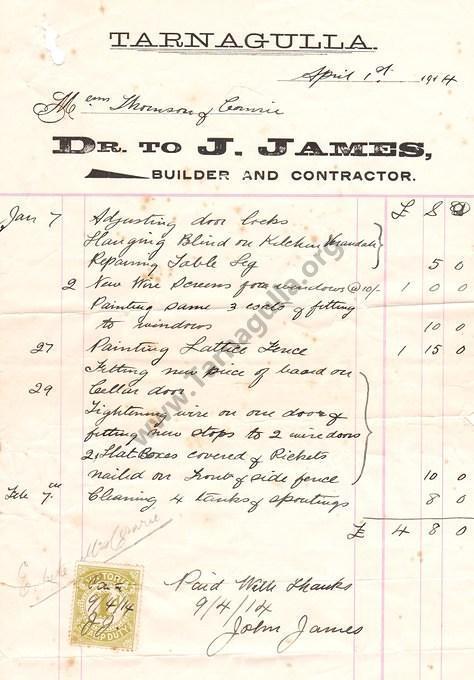 TARNAGULLA.
April 1st 1914
Messrs Thomson & Comrie
DR. TO J. JAMES,
BUILDER AND CONTRACTOR.
£ S D
Jan 7 Adjusting door locks
Hanging Blind on Kitchen Verandah
Repairing Table Leg 5 0
2 New Wire Screens for windows @ 10/- 1 0 0
Painting same 3 coats & fitting
to windows 10 0
27 Painting Lattice Fence 1 15 0
Fitting new piece of board on
29 Cellar door
Tightening wire on one door &
fitting new stops to 2 wire doors
2 Flat Boxes covered & Pickets
nailed on Front & side fence 10 0
Feb 7th Cleaning 4 tanks & spoutings 8 0
£ 4 8 0
Mrs Comrie
Paid With Thanks
9/4/14
John James
Paid
9/4/14
J.J.
STAMP DUTY
www.Tarnagulla.org